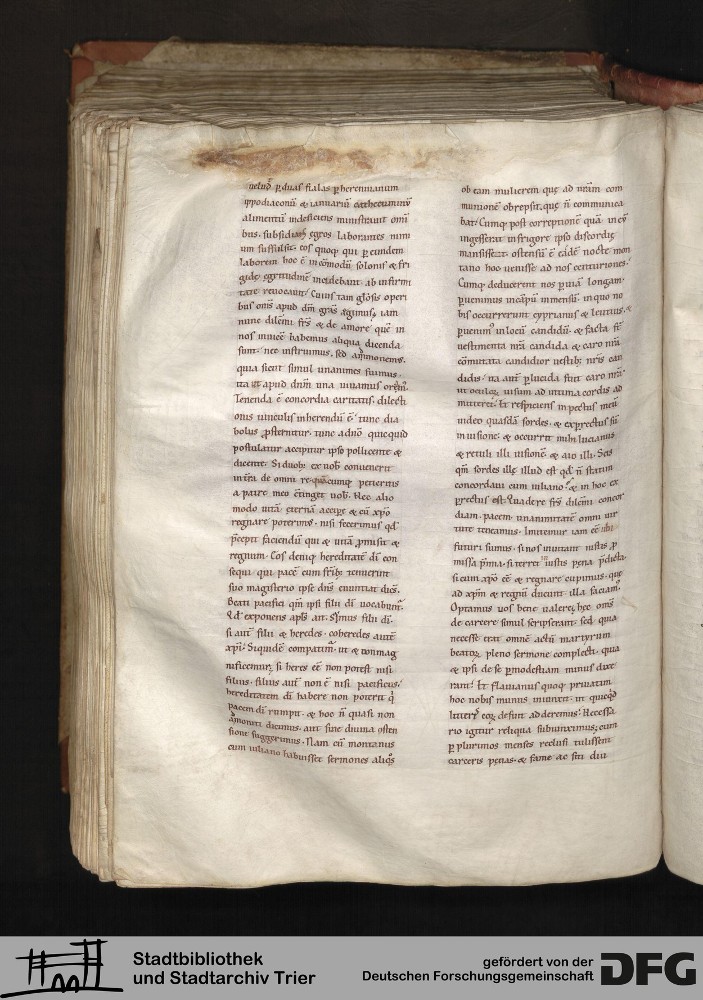 uelud ꝑ duas fialas ꝑ herennianum
ippodiaconū & ianuariū cathecuminū
alimentū indeficiens ministrauit omī
bus. subsidiaꝫ egros laborantes nimi
um fulsulsit. eos quoq qui ꝑ eundem
laborem hoc ē incōmodū solonis & fri
gide egritudinē incidebant ab infirmi
tate reuocauit. Cuius tam gloś̄is operi
bus oms apud dm̄ gras agimus. iam
nunc dilcm̄i frs̄ & de amore quē in
nos inuicē habemus aliqua dicenda
sunt. nec instruimus. sed ām̄onemus.
quia sicut simul unanimes fuimus.
ita & apud dnm̄ una uiuamus orem̄.
Tenenda ē concordia caritatis. dilecti
onis uinculis inherendū ē. tunc dia
bolus ꝓsternitur. tunc a dn̄o quicquid
postulatur accipitur ipso pollicente &
dicente. Si duob: ex uob̄ conuenerit
in tr̄a de omni re. quācumq petieritis
a patre meo c̄tinget uob̄. Nec alio
modo uitā eternā accipe & cū xp̄o
regnare poterim̄. nisi fecerimus qd̄
p̄cepit faciendū qui & uitā ꝓmisit &
regnum. Eos deniq hereditatē di con
sequi qui pacē cum frib: tenuerint
suo magisterio ipse dn̄s enuntiat dicēs.
Beati pacifici qm̄ ipsi filii di uocabunt̄.
Qd̄ exponens apls̄ ait. Sumus filii di.
si autē filii & heredes. coheredes autē
xpi. Siquidē compatim̄. ut & conmag
nificemur. si heres eē non potest nisi
filius. filius aut̄ non ē nisi pacificus.
hereditatem di habere non poterit q̄
pacem di rumpit. & hoc n̄ quasi non
ām̄oniti dicimus. aut sine diuina osten
sione suggerimus. Nam cū montanus
cum iuliano habuisset sermones aliq̄s
ob eam mulierem quę ad nrām com
munionē obrepsit. quę n̄ communica
bat. Cumq post correptionē quā in eū
ingesserat in frigore ipso discordię
mansisset. ostensū ē eadē nocte mon
tano hoc. uenisse ad nos centuriones.
Cumq deducerent nos ꝑ uiā longam.
ꝑuenimus in cāpū inmensū. in quo no
bis occurrerunt cyprianus & leucius. &
ꝑuenim̄ in locū candidū. & facta st̄
uestimenta nrā candida & caro nrā
cōmutata candidior uestib: nris̄ can
didis. ita aut̄ ꝑlucida fuit caro nrā.
ut oculoꝝ uisum ad intima cordis ad
mitteret. Et respiciens in pectus meū
uideo quasdā sordes. & exꝑrectus sū
in uisione. & occurrit mihi lucianus
& retuli illi uisionē & aio illi. Scis
qm̄ sordes illę illud est qd̄ n̄ statim
concordaui cum iuliano. & in hoc ex
ꝑrectus est. Quadere frs̄ dilcm̄i concor
diam. pacem. unanimitatē omni uir
tute teneamus. Imitemur iam eē ubi
futuri sumus. si nos inuitant iustis ꝓ
missa p̄mia. si terret iniustis pena p̄dicta.
si cum xp̄o eē & regnare cupimus. que
ad xpm̄ & regnū ducunt illa faciam̄.
Optamus uos bene ualere. hęc om̄s
de carcere simul scripserant. sed quia
necesse erat omnē actū martyrum
beatoꝝ pleno sermone complecti. quia
& ipsi de se ꝑ modestiam minus dixe
rant. Et flauianus quoq priuatim
hoc nobis munus iniunxit. ut quicqd̄
litteris eoꝝ desint adderemus. Necessa
rio igitur reliqua subiunximus. cum
ꝑ plurimos menses reclusi tulissent
carceris penas. & fame ac siti diu
Stadtbibliothek
und Stadtarchiv Trier
gefördert von der
Deutschen Forschungsgemeinschaft
DFG